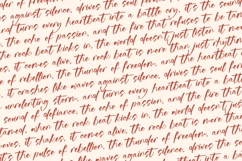 against silence, drives the soul for
and turns every heartbeat into a battle cry. it's the
the echo of passion, and the fire that refuses to be tamed
the rock beat kicks in, the world doesn't just listen it
it shakes. it comes alive. the rock beat is more than just rhythm
of rebellion, the thunder of freedom, and the heartbeat
it crashes like waves against silence, drives the soul forward
unrelenting storm, and turns every heartbeat into a battle
sound of defiance, the echo of passion, and the fire that
tamed. when the rock beat kicks in, the world doesn't just
moves. it shakes. it comes alive. the rock beat is more than
it's the pulse of rebellion, the thunder of freedom, and the
against silence, drives